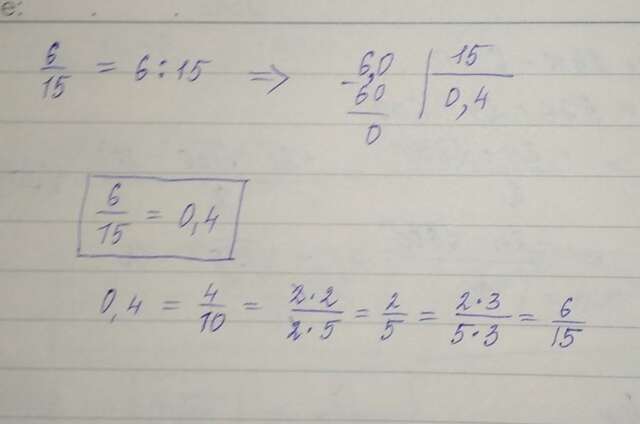 6/15 = 6 : 15 ⇒ 6,0 | 15
- 60 | 0,4
0
6/15 = 0,4
0,4 = 4/10 = 2·2/2·5 = 2/5 = 2·3/5·3 = 6/15